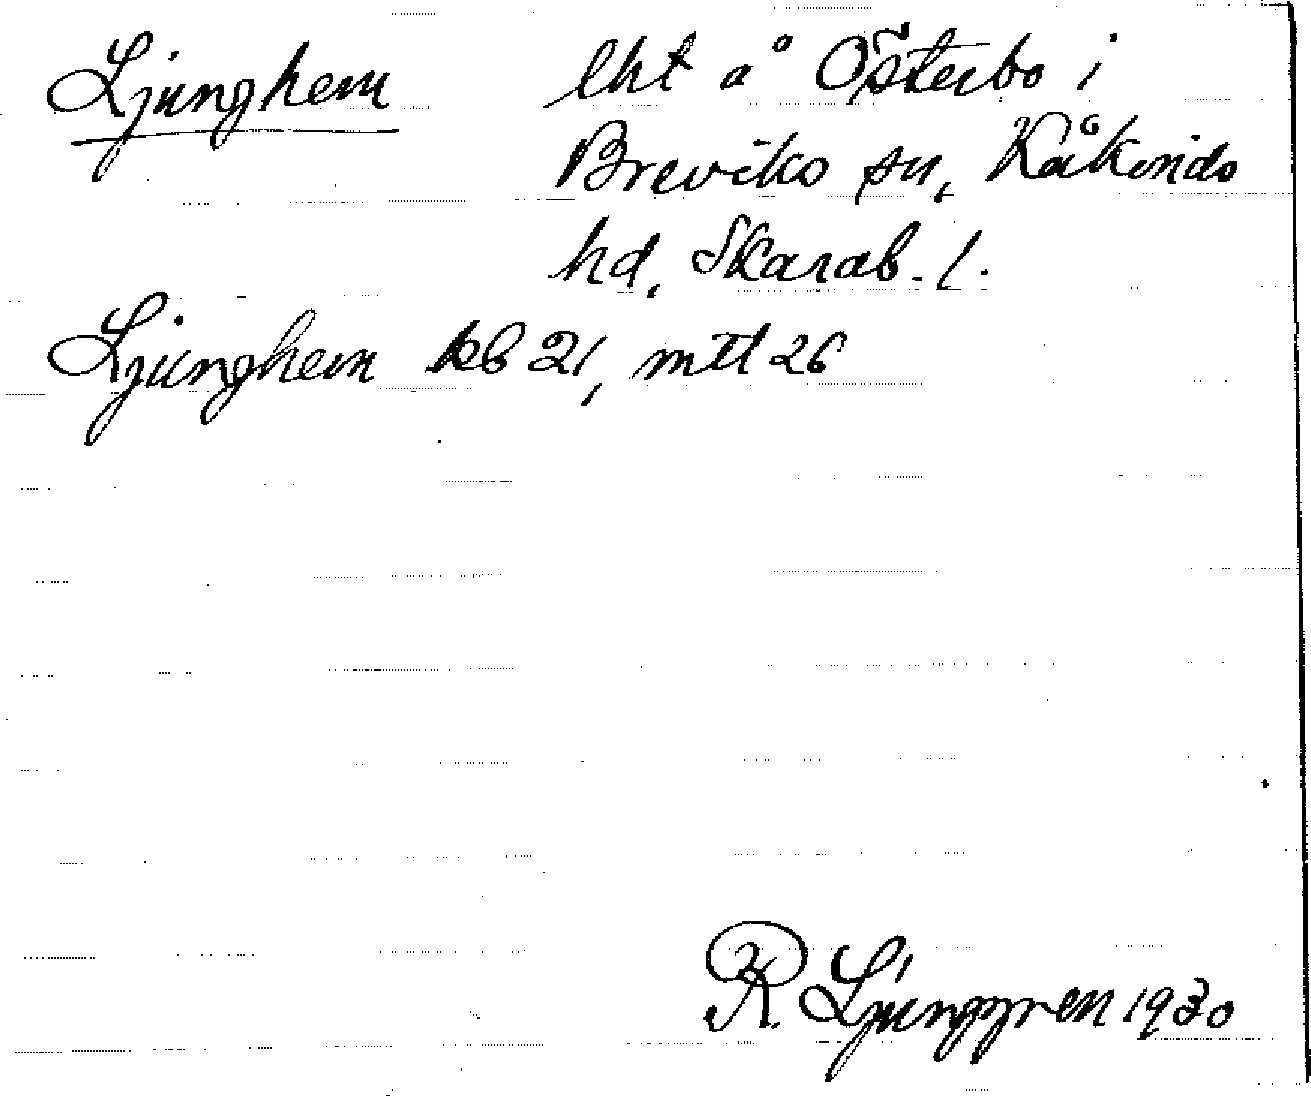 Ljunghem lht å Österbo i
Breviks sn, Kåkinds
hd, Skarab. l.
Ljunghem kb 21, mtl 26
R. Ljunggren 1930